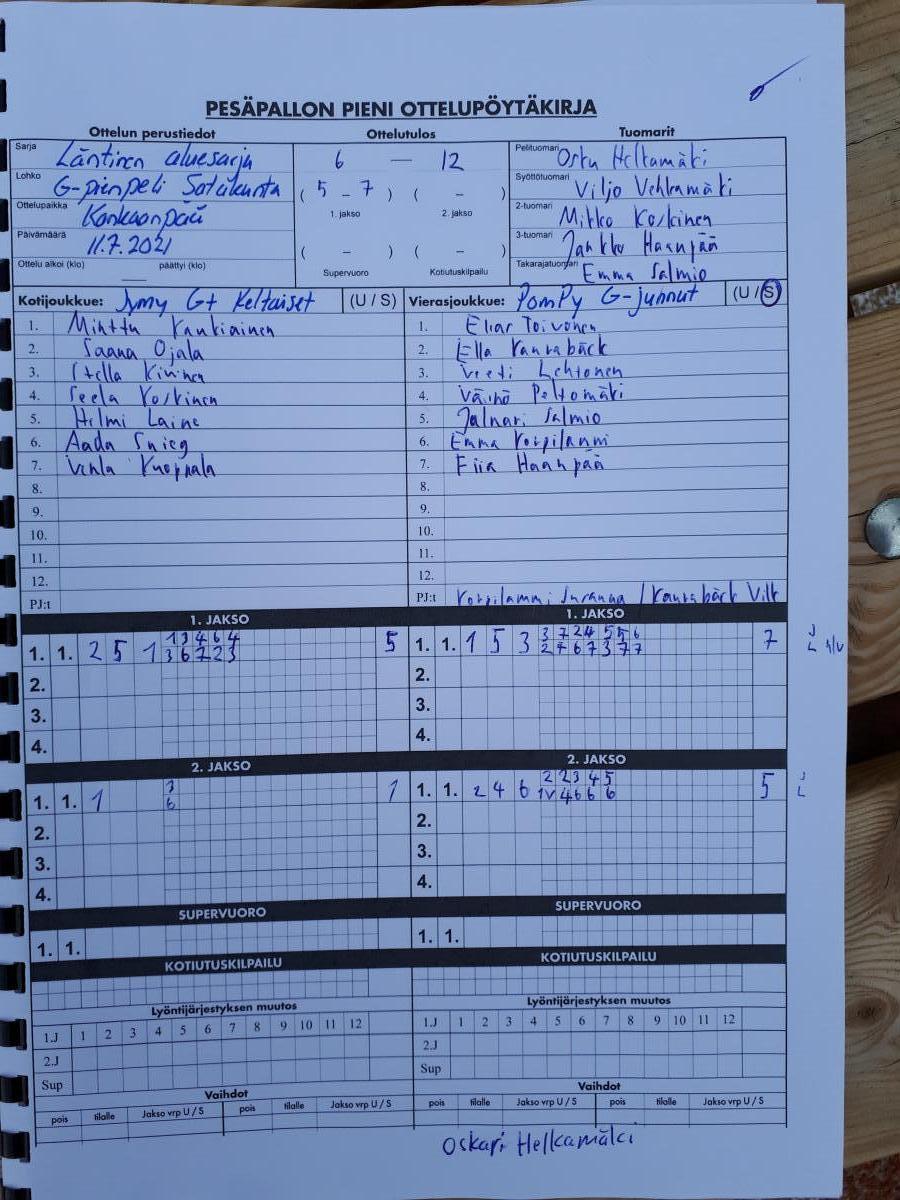 PESÄPALLON PIENI OTTELUPÖYTÄKIRJA
Ottelun perustiedot Ottelutulos Tuomarit
Sarja Läntinen aluesarja
Lohko G-pienpeli Satakunta
Ottelupaikka Kankaanpää
Päivämäärä 11.7.2021
Ottelu alkoi (klo) — päättyi (klo)
6 — 12
( 5 – 7 ) ( – )
1. jakso 2. jakso
( – ) ( – )
Supervuoro Kotiutuskilpailu
Pelituomari Osku Helkamäki
Syöttötuomari Viljo Vehkamäki
2-tuomari Mikko Koskinen
3-tuomari Jaakko Haanpää
Takarajatuomari Emma Salmio
Kotijoukkue: Jymy G+ Keltaiset (U / S)
1. Minttu Kankiainen
2. Saana Ojala
3. Stella Kivinen
4. Seela Koskinen
5. Helmi Laine
6. Aada Snieg
7. Venla Kuoppala
8.
9.
10.
11.
12.
PJ:t
Vierasjoukkue: PomPy G-junnut (U / S)
1. Elias Toivonen
2. Ella Kannabäck
3. Veeti Lehtonen
4. Väinö Peltomäki
5. Jalmari Salmio
6. Emma Korpilammi
7. Fiia Haanpää
8.
9.
10.
11.
12.
PJ:t Korpilammi Susanna / Kannabäck Ville
1. JAKSO
1. 1. 2 5 1 1 3 4 6 4 5
3 6 7 2 3
2.
3.
4.
1. JAKSO
1. 1. 1 5 3 3 7 2 4 5 5 6 7 J
2 4 6 7 3 7 7 L
2.
3.
4.
2. JAKSO
1. 1. 1 3 1
6
2.
3.
4.
2. JAKSO
1. 1. 2 4 6 2 2 3 4 5 5 J
1V 4 6 6 6 L
2.
3.
4.
SUPERVUORO
1. 1.
SUPERVUORO
1. 1.
KOTIUTUSKILPAILU
Lyöntijärjestyksen muutos
1.J 1 2 3 4 5 6 7 8 9 10 11 12
2.J
Sup
Vaihdot
pois tilalle Jakso vrp U / S pois tilalle Jakso vrp U / S
KOTIUTUSKILPAILU
Lyöntijärjestyksen muutos
1.J 1 2 3 4 5 6 7 8 9 10 11 12
2.J
Sup
Vaihdot
pois tilalle Jakso vrp U / S pois tilalle Jakso vrp U / S
Oskari Helkamäki